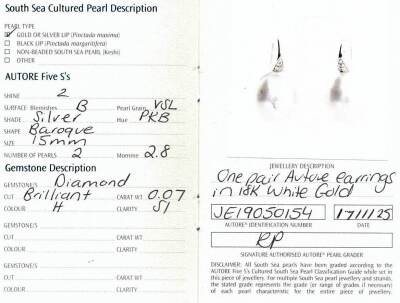 South Sea Cultured Pearl Description
PEARL TYPE
GOLD OR SILVER LIP (Pinctada maxima)
BLACK LIP (Pinctada margaritifera)
NON-BEADED SOUTH SEA PEARL (Keshi)
OTHER
AUTORE Five S's
SHINE 2
SURFACE Blemishes B Pearl Grain VSL
SHADE Silver Hue PKB
SHAPE Baroque
SIZE 15mm
NUMBER OF PEARLS 2 Momme 2.8
Gemstone Description
GEMSTONE/S Diamond
CUT Brilliant CARAT WT 0.07
COLOUR H CLARITY SI
GEMSTONE/S
CUT CARAT WT
COLOUR CLARITY
GEMSTONE/S
CUT CARAT WT
COLOUR CLARITY
JEWELLERY DESCRIPTION
One pair Autore earrings
in 18K White Gold
JE19050154 17/11/25
AUTORE® IDENTIFICATION NUMBER DATE
RP
SIGNATURE AUTHORISED AUTORE® PEARL GRADER
DISCLAIMER: All South Sea pearls have been graded according to the
AUTORE Five S's Cultured South Sea Pearl Classification Guide while set in
this piece of jewellery. For multiple South Sea pearl jewellery and strands,
the stated grade represents the grade (or range of grades if necessary)
of each pearl characteristic for the entire piece of jewellery.